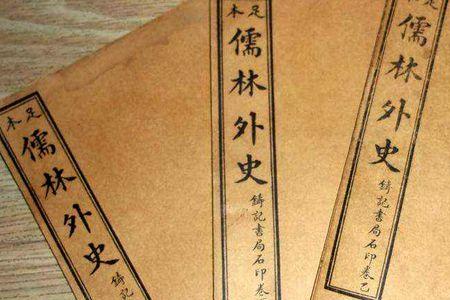 足本
儒林外史
鑄記
足本
儒林外史
鑄記書局石印卷
足
儒林外史
鑄記書局石印卷乙